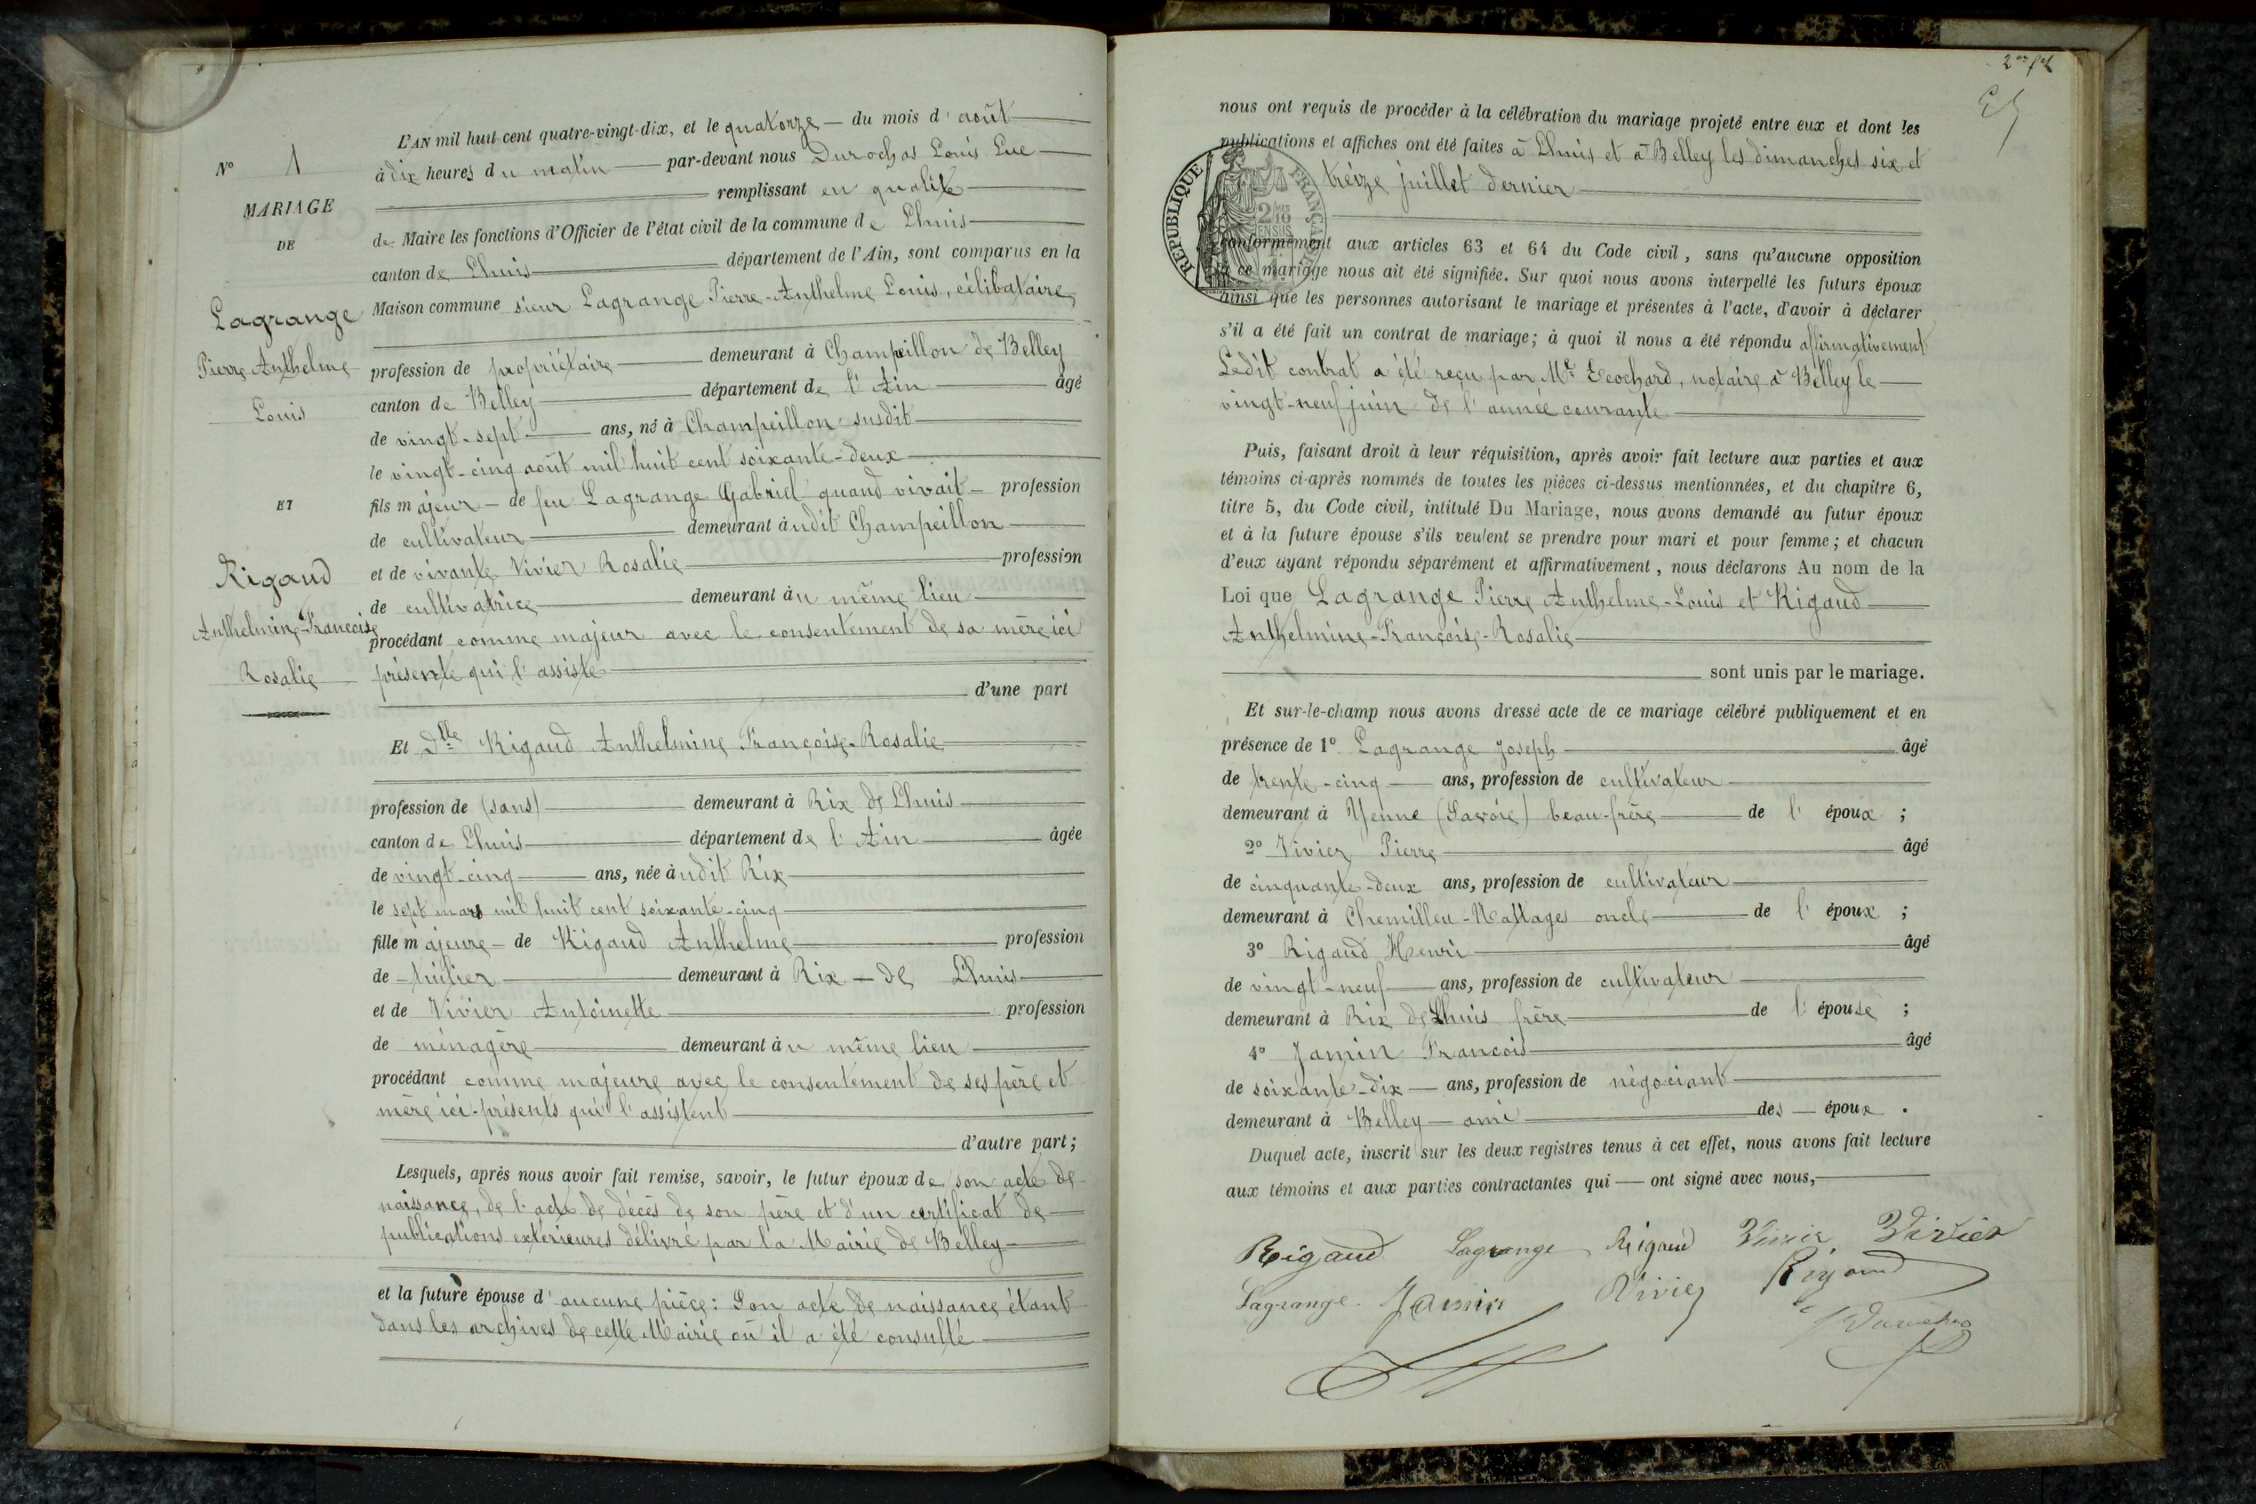 N° 1
MARIAGE
DE
Lagrange
Pierre-Anthelme
Louis
ET
Rigaud
Anthelmine-Francoise
Rosalie
L'AN mil huit cent quatre-vingt-dix, et le quatorze du mois d'août
à dix heures du matin par-devant nous Durochas Louis Luc
remplissant en qualité
de Maire les fonctions d'Officier de l'état civil de la commune de Lhuis
canton de Lhuis département de l'Ain, sont comparus en la
Maison commune sieur Lagrange Pierre-Anthelme Louis, célibataire,
profession de propriétaire demeurant à Champeillon de Belley
canton de Belley département de l'Ain âgé
de vingt-sept ans, né à Champeillon susdit
le vingt-cinq août mil huit cent soixante-deux
fils majeur de feu Lagrange Gabriel quand vivait profession
de cultivateur demeurant àudit Champeillon
et de vivante Vivier Rosalie profession
de cultivatrice demeurant àu même lieu
procédant comme majeur avec le consentement de sa mère ici
présente qui l'assiste
d'une part
Et Dlle Rigaud Anthelmine Françoise-Rosalie
profession de (sans) demeurant à Rix de Lhuis
canton de Lhuis département de l'Ain âgée
de vingt-cinq ans, née àudit Rix
le sept mars mil huit cent soixante-cinq
fille majeure de Rigaud Anthelme profession
de tuilier demeurant à Rix de Lhuis
et de Vivier Antoinette profession
de ménagère demeurant àu même lieu
procédant comme majeure avec le consentement de ses père et
mère ici-présents qui l'assistent
d'autre part;
Lesquels, après nous avoir fait remise, savoir, le futur époux de son acte de
naissance, de l'acte de décès de son père et d'un certificat de
publications extérieures délivré par la Mairie de Belley
et la future épouse d'aucune pièce: Son acte de naissance étant
dans les archives de cette Mairie où il a été consulté
nous ont requis de procéder à la célébration du mariage projeté entre eux et dont les
publications et affiches ont été faites à Lhuis et à Belley les dimanches six et
treize juillet dernier
RÉPUBLIQUE FRANÇAISE
conformément aux articles 63 et 64 du Code civil, sans qu'aucune opposition
à ce mariage nous ait été signifiée. Sur quoi nous avons interpellé les futurs époux
ainsi que les personnes autorisant le mariage et présentes à l'acte, d'avoir à déclarer
s'il a été fait un contrat de mariage; à quoi il nous a été répondu affirmativement
Ledit contrat a été reçu par Me Ecochard, notaire à Belley le
vingt-neuf juin de l'année courante
Puis, faisant droit à leur réquisition, après avoir fait lecture aux parties et aux
témoins ci-après nommés de toutes les pièces ci-dessus mentionnées, et du chapitre 6,
titre 5, du Code civil, intitulé Du Mariage, nous avons demandé au futur époux
et à la future épouse s'ils veulent se prendre pour mari et pour femme; et chacun
d'eux ayant répondu séparément et affirmativement, nous déclarons Au nom de la
Loi que Lagrange Pierre Anthelme-Louis et Rigaud
Anthelmine-Françoise-Rosalie
sont unis par le mariage.
Et sur-le-champ nous avons dressé acte de ce mariage célébré publiquement et en
présence de 1° Lagrange Joseph âgé
de trente-cinq ans, profession de cultivateur
demeurant à Yenne (Savoie) beau-frère de l'époux;
2° Vivier Pierre âgé
de cinquante-deux ans, profession de cultivateur
demeurant à Chemilleu-Nattages oncle de l'époux;
3° Rigaud Henri âgé
de vingt-neuf ans, profession de cultivateur
demeurant à Rix de Lhuis frère de l'épouse;
4° Jamin Francois âgé
de soixante-dix ans, profession de négociant
demeurant à Belley ami des époux.
Duquel acte, inscrit sur les deux registres tenus à cet effet, nous avons fait lecture
aux témoins et aux parties contractantes qui ont signé avec nous,
Rigaud Lagrange Rigaud Vivier Vivier
Lagrange Jamin Vivier Rigaud
Durochas